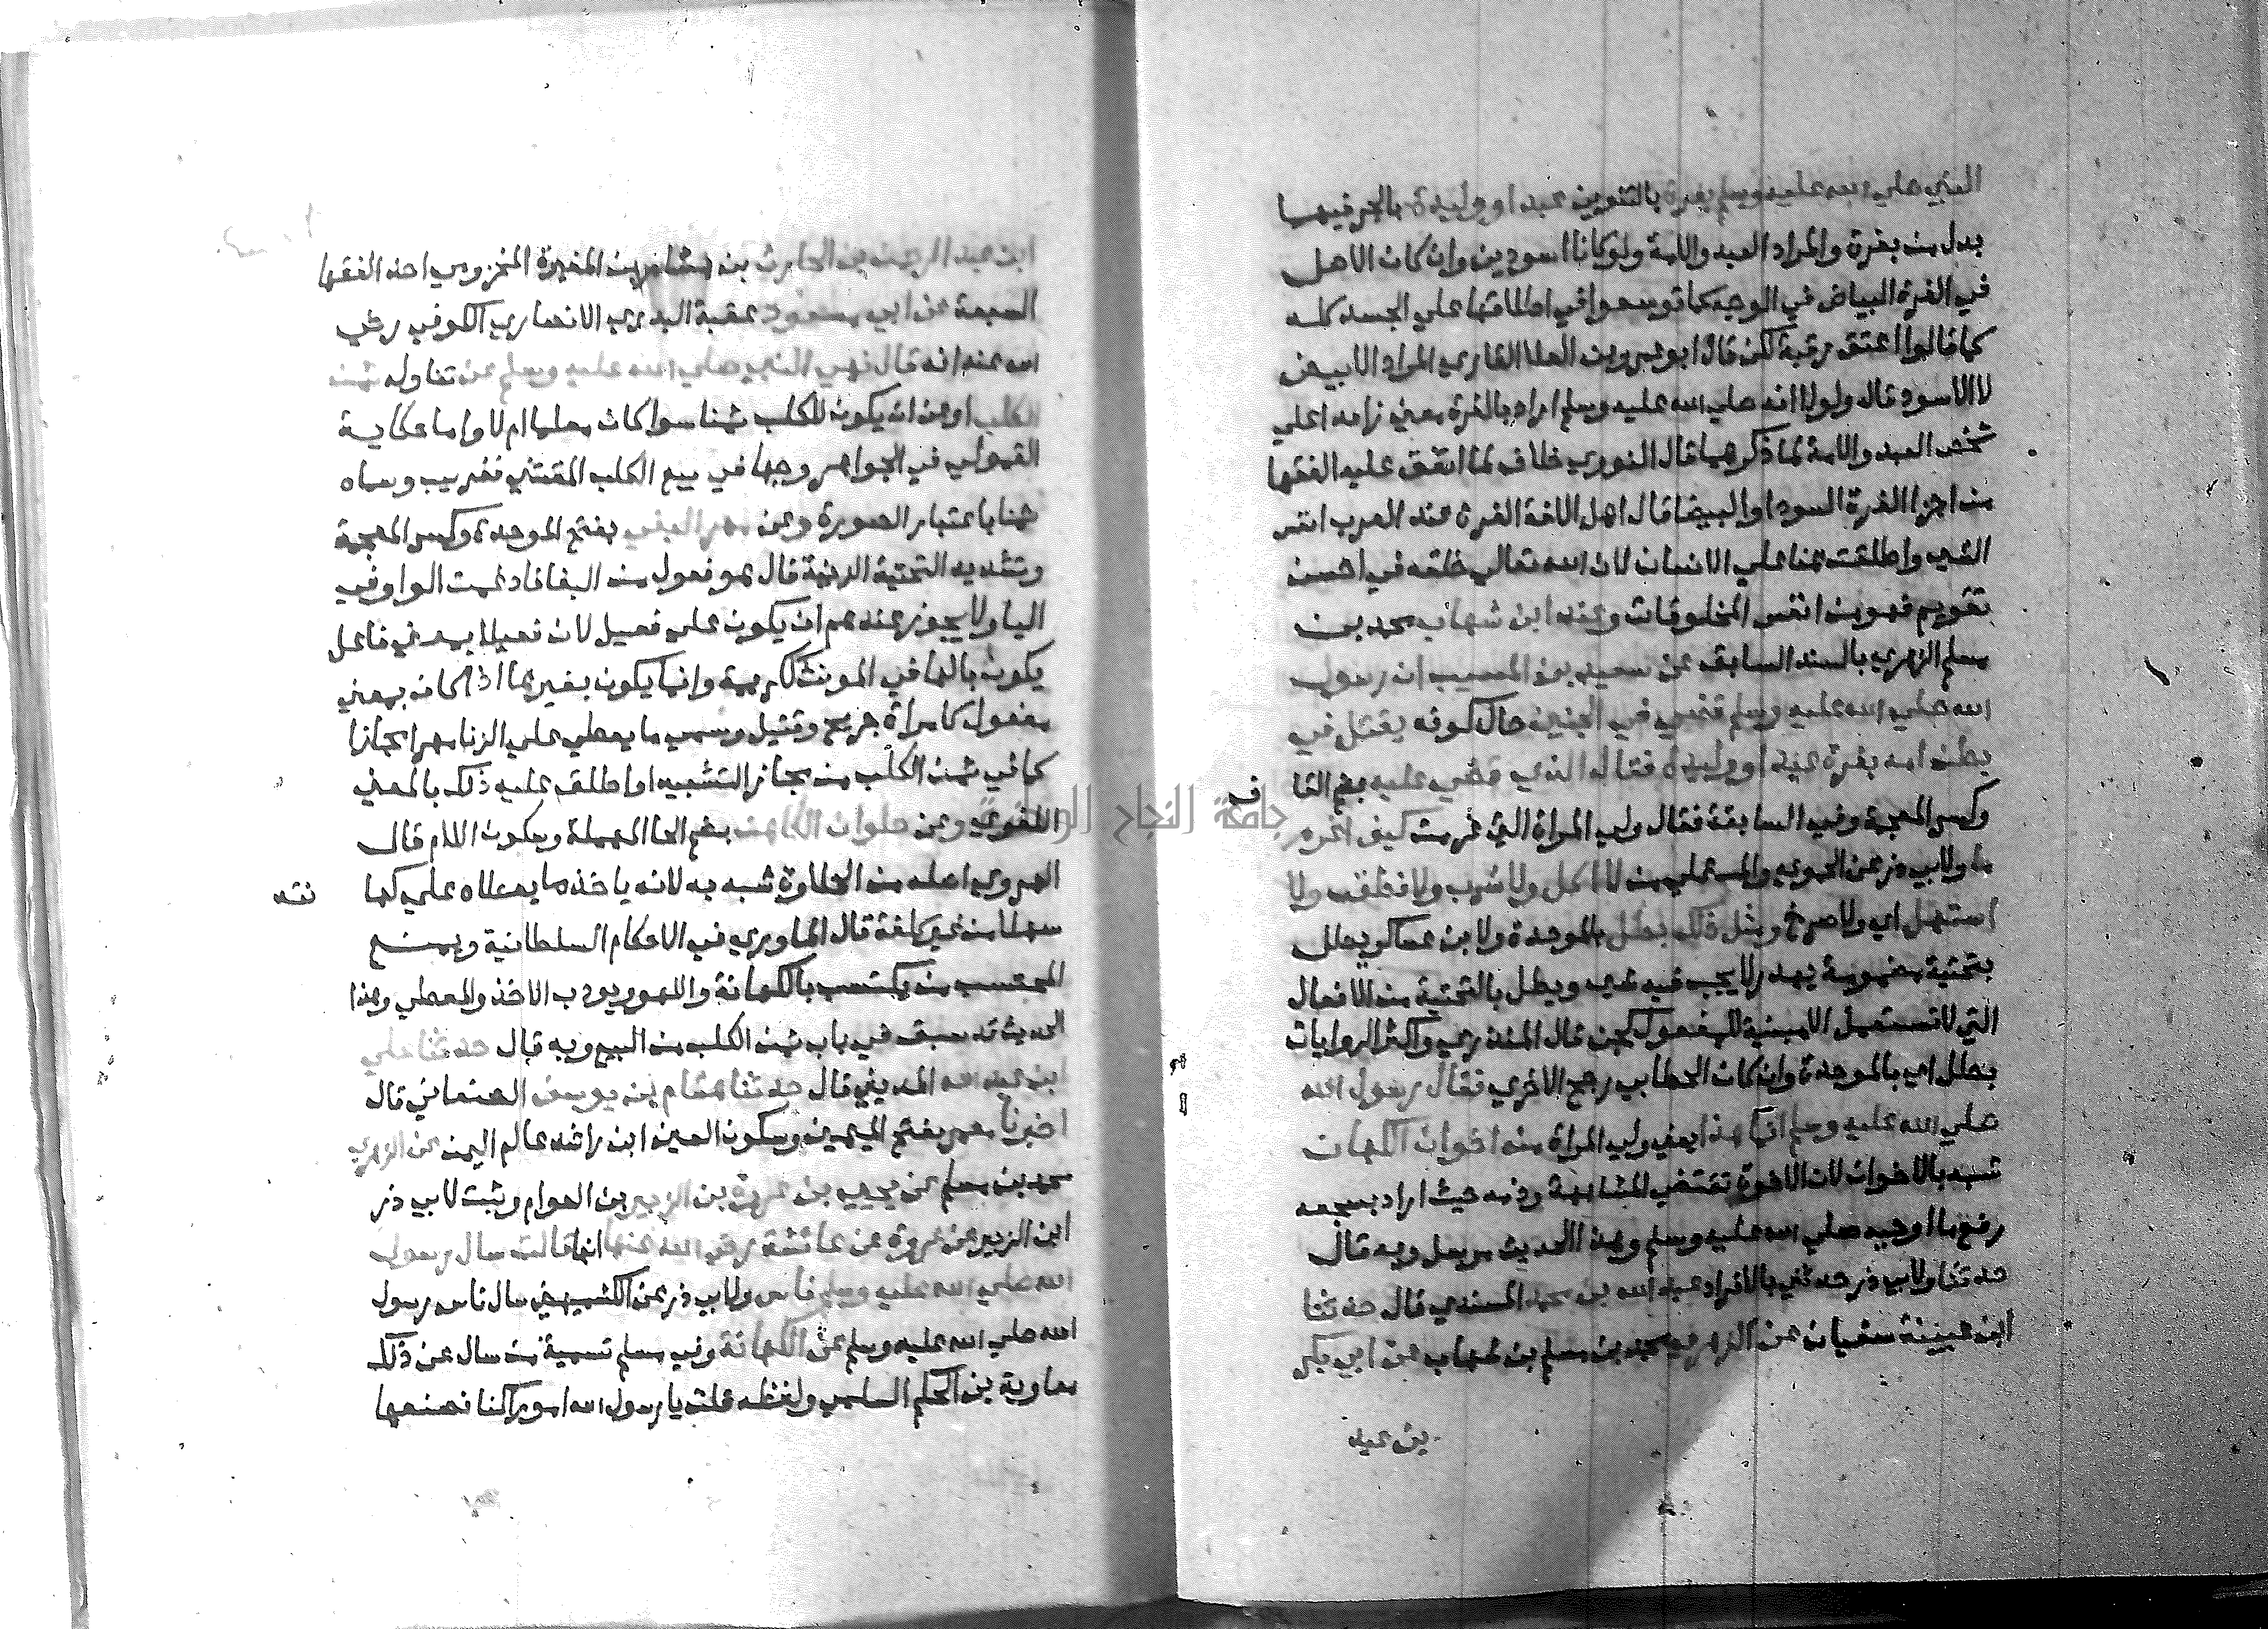 النبي صلي الله عليه وسلم بغرة بالتنوين عبد او وليدة بالجر فيهما
بدل من بغرة والمراد العبد والامة ولو كانا اسودين وان كان الاصل
في الغرة البياض في الوجه كما توسعوا في اطلاقها علي الجسد كله
كما قالوا اعتق رقبة لكن قال ابو عمرو بن العلا القاري المراد الابيض
لا الاسود قال ولولا انه صلي الله عليه وسلم اراد بالغرة معني زايدا علي
شخص العبد والامة لما ذكرهما قال النووي خلاف لما اتفق عليه الفقها
من اجزا الغرة السودا والبيضا قال اهل اللغة الغرة عند العرب انفس
الشي واطلقت هنا علي الانسان لان الله تعالي خلقه في احسن
تقويم فهو من انفس المخلوقات وعن ابن شهاب محمد بن
مسلم الزهري بالسند السابق عن سعيد بن المسيب ان رسول
الله صلي الله عليه وسلم قضي في الجنين حال كونه يقتل في
بطن امه بغرة عبد او وليدة فقال الذي قضي عليه بضم القا
ف
وكسر المعجمة وفي السابقة فقال ولي المراة التي غرمت كيف اغرم
ما ولابي ذر عن الحموي والمستملي من لا اكل ولا شرب ولا نطق ولا
استهل اي ولا صرخ ومثل ذلك بطل بالموحدة ولابن عساكر يطل
بتحتية مضمومة يهدر لا يجب فيه شي ويطل بالتحتية من الافعال
التي لا تستعمل الا مبنية للمفعول لكن قال المنذري واكثر الروايات
بطل اي بالموحدة وان كان الخطابي رجح الاخري فقال رسول الله
صلي الله عليه وسلم انما هذا يعني ولي المراة من اخوان الكهان
شبه بالاخوان لان الاخوة تقتضي المشابهة وذمه حيث اراد بسجعه
رفع ما اوجبه صلي الله عليه وسلم وهذا الحديث مرسل وبه قال
حدثنا ولابي ذر حدثني بالافراد عبد الله بن محمد المسندي قال حدثنا
ابن عيينة سفيان عن الزهري محمد بن مسلم بن شهاب عن ابي بكر
بن عبد
ابن عبد الرحمن بن الحارث بن هشام بن المغيرة المخزومي احد الفقها
السبعة عن ابي مسعود عقبة البدري الانصاري الكوفي رضي
الله عنه انه قال نهي النبي صلي الله عليه وسلم عن تناول ثمن
الكلب او عن ان يكون للكلب ثمنا سوا كان معلما ام لا واما حكاية
القمولي في الجواهر وجها في بيع الكلب المقتني فغريب وسماه
ثمنا باعتبار الصورة وعن مهر البغي بفتح الموحدة وكسر المعجمة
وتشديد التحتية الزانية قال هو فعول من البغا فادغمت الواو في
اليا ولا يجوز عندهم ان يكون علي فعيل لان فعيلا بمعني فاعل
يكون بالها في المونث ككريمة وانما يكون بغيرها اذا كان بمعني
مفعول كامراة جريح وقتيل وسمي ما يعطي علي الزنا مهرا مجازا
كما في ثمن الكلب من مجاز التشبيه او اطلق عليه ذلك بالمعني
اللغوي وعن حلوان الكاهن بضم الحا المهملة وسكون اللام قال
الهروي اصله من الحلاوة شبه به لانه ياخذ ما يعطاه علي كها
نته
سهلا من غير كلفة قال الماوردي في الاحكام السلطانية ويمنع
المحتسب من يكتسب بالكهانة واللهو ويودب الاخذ والمعطي وهذا
الحديث قد سبق في باب ثمن الكلب من البيع وبه قال حدثنا علي
ابن عبد الله المديني قال حدثنا هشام بن يوسف الصنعاني قال
اخبرنا معمر بفتح الميمين وسكون العين ابن راشد عالم اليمن عن الزهري
محمد بن مسلم عن يحيي بن عروة بن الزبير بن العوام وثبت لابي ذر
ابن الزبير عن عروة عن عائشة رضي الله عنها انها قالت سال رسول
الله صلي الله عليه وسلم ناس ولابي ذر عن الكشميهني سال ناس رسول
الله صلي الله عليه وسلم عن الكهانة وفي مسلم تسمية من سال عن ذلك
معاوية بن الحكم السلمي ولفظه قلت يا رسول الله امورا كنا نصنعها